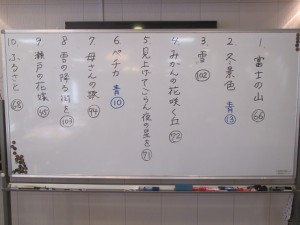 1. 富士の山 66
2. 冬景色 青13
3. 雪 102
4. みかんの花咲く丘 92
5. 見上げてごらん夜の星を 91
6. ペチカ 青10
7. 母さんの歌 94
8. 雪の降る街を 103
9. 瀬戸の花嫁 45
10. ふるさと 68